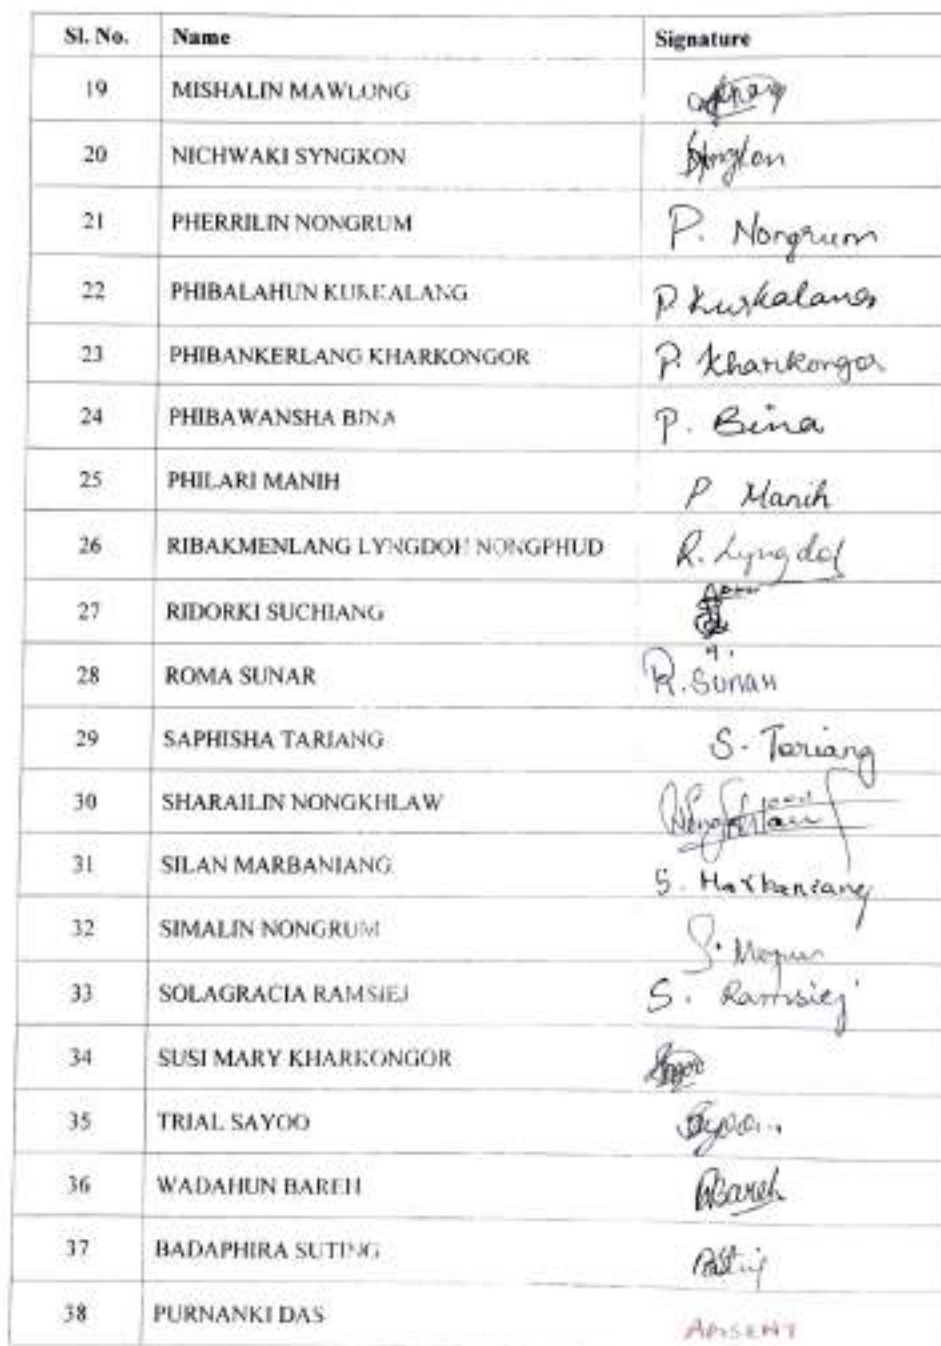 Sl. No. Name Signature
19 MISHALIN MAWLONG
20 NICHWAKI SYNGKON Syngkon
21 PHERRILIN NONGRUM P. Nongrum
22 PHIBALAHUN KURKALANG P. Kurkalang
23 PHIBANKERLANG KHARKONGOR P. Kharkongor
24 PHIBAWANSHA BINA P. Bina
25 PHILARI MANIH P Manih
26 RIBAKMENLANG LYNGDOH NONGPHUD R. Lyngdoh
27 RIDORKI SUCHIANG
28 ROMA SUNAR R. Sunar
29 SAPHISHA TARIANG S. Tariang
30 SHARAILIN NONGKHLAW
31 SILAN MARBANIANG S. Marbaniang
32 SIMALIN NONGRUM
33 SOLAGRACIA RAMSIEJ S. Ramsiej
34 SUSI MARY KHARKONGOR
35 TRIAL SAYOO
36 WADAHUN BAREH WBareh
37 BADAPHIRA SUTING
38 PURNANKI DAS ABSENT